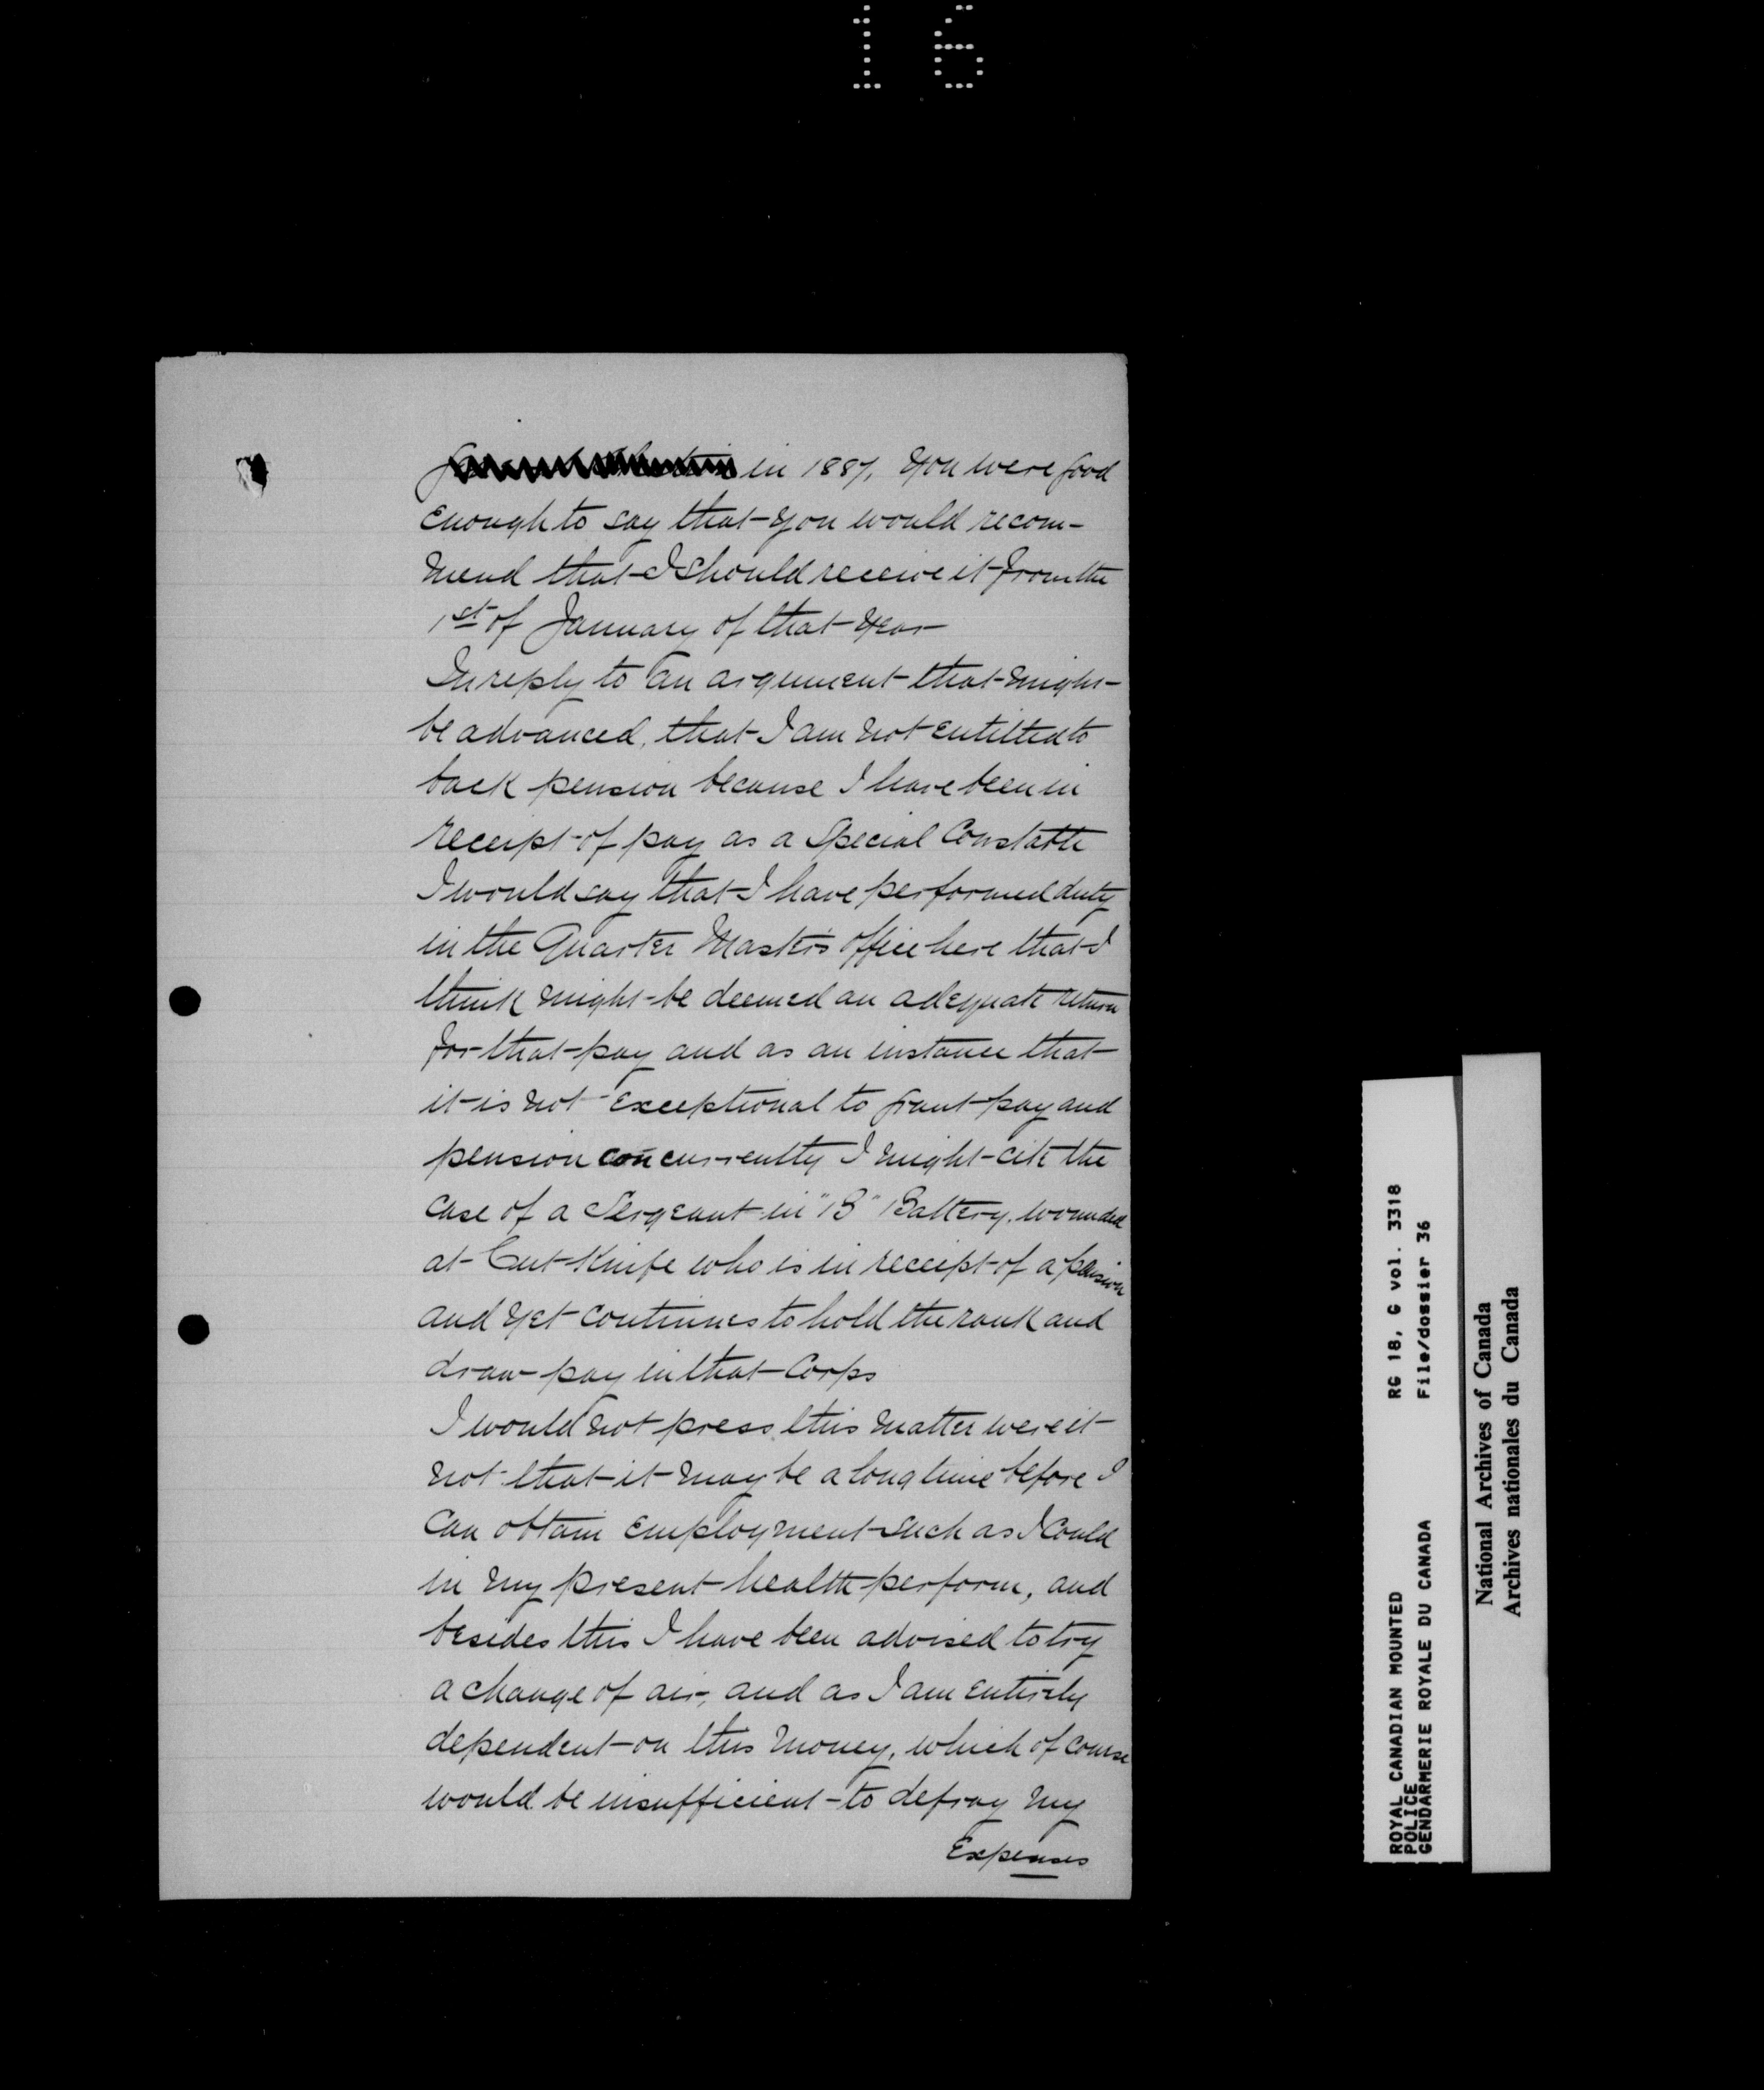 16
in 1887, You were good
enough to say that you would recom-
mend that I should receive it from the
1st of January of that year
In reply to an argument that might
be advanced, that I am not entitled to
back pension because I have been in
receipt of pay as a Special Constable
I would say that I have performed duty
in the Quarter Master's office here that I
think might be deemed an adequate return
for that pay and as an instance that
it is not exceptional to grant pay and
pension concurrently I might cite the
case of a Sergeant in "B" Battery, wounded
at Cut Knife who is in receipt of a pension
and yet continues to hold the rank and
draw pay in that Corps
I would not press this matter were it
not that it may be a long time before I
can obtain employment such as I could
in my present health perform, and
besides this I have been advised to try
a change of air, and as I am entirely
dependent on this money, which of course
would be insufficient to defray my
Expenses
ROYAL CANADIAN MOUNTED
POLICE
GENDARMERIE ROYALE DU CANADA
RG 18, G vol. 3318
File/dossier 36
National Archives of Canada
Archives nationales du Canada